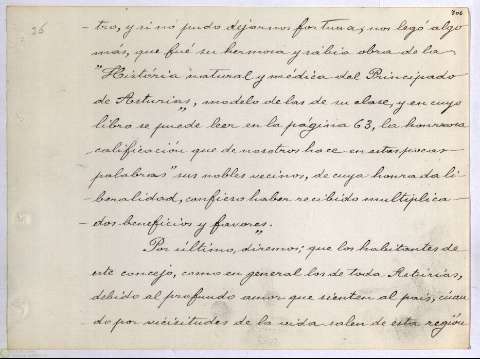 26
306
- tro, y si nó pudo dejarnos fortuna, nos legó algo
más, que fué su hermosa y sábia obra de la
"História natural y médica del Principado
de Asturias", modelo de las de su clase, y en cuyo
libro se puede leer en la página 63, la honrosa
calificación que de nosotros hace en estas pocas
palabras "sus nobles vecinos, de cuya honrada li
beralidad, confieso haber recibido multiplica-
dos beneficios y favores."
Por último, diremos; que los habitantes de
este concejo, como en general los de toda Asturias,
debido al profundo amor que sienten al país, cuan
do por vicisitudes de la vida salen de esta región